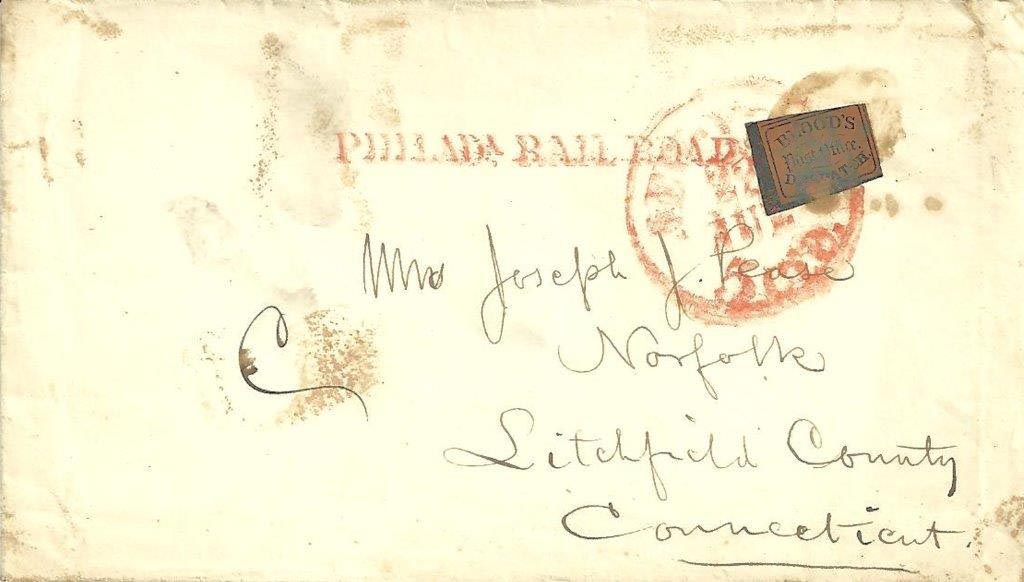 PHILADA RAIL ROAD
BLOOD'S
Post Office
DESPATCH.
Mrs Joseph J. Pease
Norfolk
Litchfield County
Connecticut.